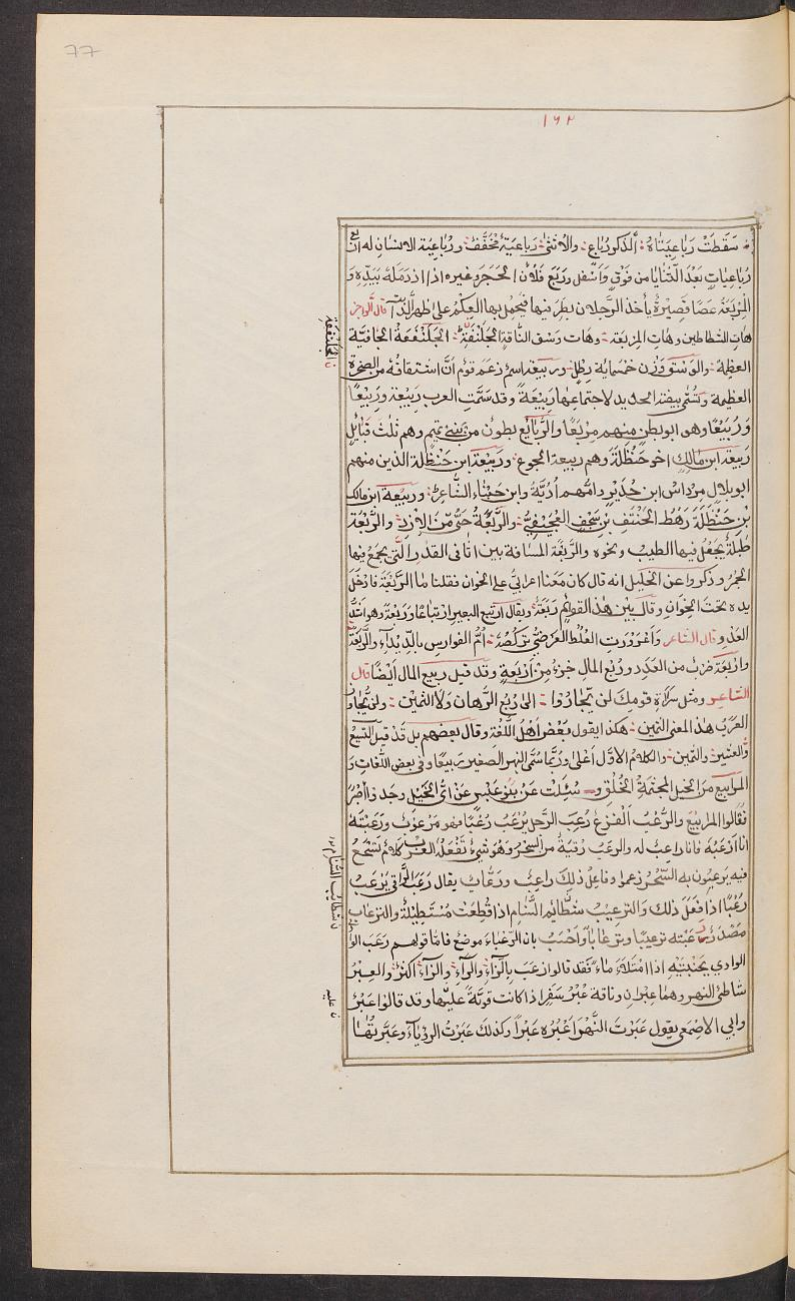 77
١٦٢
سَقَطَتْ رَبَاعِيَتَاهُ الذكر رَبَاعٍ والأنثى رَبَاعِيَة مُخَفَّف ورُبَاعِيَة الانسان له أربع
رُباعِيَاتٍ بَعْدَ الثَّنَايَا من فَوْقٍ وَأَسْفل ورَبَعَ فلان الحَجَرَ وغيره اذا حَمَلَهُ بيَدِه وَ
المِرْبَعَةُ عَصًا قَصِيرَةٌ يأخذ الرَّجلان بطرفيها فيحمل بها العِكْمُ على ظهر الدابة قال الراجز
هاتِ الشظاظين وهاتِ المِرْبَعَه وهات وَسْق النَّاقة الجَلَنْفَعَه الجَلَنْفَعَةُ الجافية
العظيمة والوَسْق وَزْن خمسماية رطل ورَبيعَة اسم زعم قوم انَّ اشتقاقه من الصخرة
العظيمة وتُسَمَّى بيضة الحديد لاجتماعها رَبِيعَةً وقد سَمَّتِ العرب رَبِيعَة ورَبِيعًا
وَرُبَيْعًا وهو ابو بطن منهم ومِرْبَعًا والرَّبَايِع بطون من بَنِي تميم وهم ثَلَث قَبَايِل
رَبِيعَة ابن مالِك اخو حَنْظَلَة وهم ربيعة الجوع ورَبِيعَة ابن حَنْظَلة الذين منهم
ابو بلال مِرْداس ابن حُدَيْر وامُّهم أُدَيَّة وابن حَبْنَاء الشَّاعِر ورَبِيعَة ابن مالك
بن حَنْظَلَةَ رَهْط الحُنْتَفِ بن سَجْفٍ والرَّبَعَةُ حَيٌّ مِّنَ الأزد والرَّبْعَة
طَبْلَةٌ يُجْعَلُ فيها الطيب ونحوه والرَّبَعَة المسافة بين اثافى القدر الَّتي يجمع فيها
الجمر وذكروا عن الخليل انه قال كان مَعَنا اعرابي على الخوان فقلنا ما الرَّبَعَةُ فادْخَلَ
يده تحتَ الخِوَانِ وقال بَيْن هذه القَوايِم رَبَعَة ويقال ارْتَبع البعير ارْتِبَاعًا ورَبَعَة وهو اشَدُّ
العَدْو قال الشاعر وَاعْرَوْرَتِ العُلُطَ العُرْضِيَّ تَرْكُضُهُ أمُّ الفوارس بالدِّيدَاءِ والرَّبَعَة
وارْبَعَة ضرب من العَدَد ورُبُع المالِ جُزءٌ مِنْ أرْبَعَةٍ وقد قيل رَبيع المال أيضًا قال
الشاعر ومثل سَرَاةِ قومِكَ لن يُجَارُوا الى رُبُعِ الرِّهَانِ وَلَا الثَّمِين ولم تُجَاوِز
العَرَبُ هذا المعنى الثمين هكذا يقول بَعْضُ أهْل اللُّغَةِ وقال بعضهم بل قد قيل التَّسِيعُ
والعشير والثمين والكلام الأوَّل أعْلَى ورُبَّما سُمِّي النهر الصغير رَبيعًا وفي بعض اللُّغاتِ وَ
المرابيع مِنَ الخيل المجتمعةُ الخُلُقِ وسُئِلَتْ عَنْ بَنُو عَبْسٍ عَنْ أيِّ الخَيْلِ وجد
فقَالوا المرابيع والرُّعْبُ الفَزَعُ رُعِبَ الرَّجل يُرْعَبُ رُعْبًا فهو مَرْعوبٌ ورَعَبْتُه
انا أرْعَبُهُ فانا راعبٌ له والرعْب رُقيَةٌ من السحر وهُو شيءٌ تَفْعَلُه العَرَب كلامٌ تَسْجَعُ
فيه يرعبون به السِّحْرَ زعموا وفاعِلُ ذلِكَ راعِب ورَعَّاب يقال رَعَبَ الرَّاقي يَرْعَبُ
رُعْبًا اذا فَعَلَ ذلك وَالترعِيبُ شَطَايِب السَّنَامِ اذا قُطِعَتْ مُسْتَطِيْلةً والترعاب
مَصْدَر رَعَّبته ترعيبًا وترعابًا وأحْسَبُ بان الرَّعْبَاءَ موضع فامّا قولهم رَعَبَ الو
الوادي بجَنْبَتَيْهِ اذا امْتَلَأَ مَاءً فقد قالوا زَعَبَ بالزاء والراء والزاء اكثر والعِبْرُ
شاطئ النهر وهما عِبْرانِ وناقة عُبْرُ سَفَرٍ اذا كانت قويَّةً عَلَيْها وقد قالوا عِبْرُ
وابي الأصْمَعي يقول عَبَرْتَ النَّهْرَ أعْبُرُه عَبْرًا وكذلك عَبَرْتُ الرؤيا وعَبَّرتُها
الجَلَنْفَعَةِ
شطايب السَّنَام
عليه